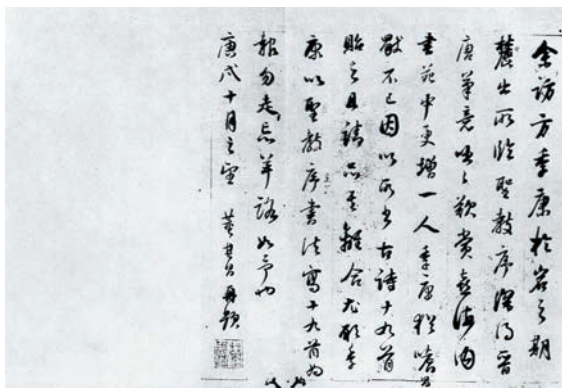 余訪方季康於岩之期
麓出所臨聖教序深得晉
唐筆意歎賞海內
書苑中更增一人季康猶嗜
不已因以所書古詩十九首
貽之且請品其離合尤願季
康以聖教序書法寫十九首為
報勿走羊路如予也
庚戌十月之望 董其昌再題